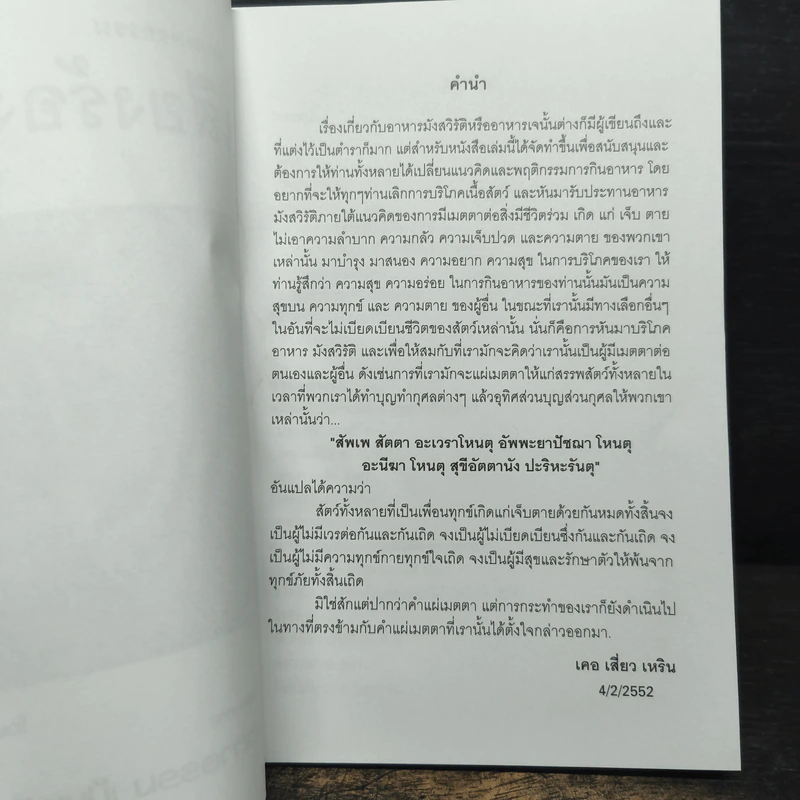 คำนำ
เรื่องเกี่ยวกับอาหารมังสวิรัติหรืออาหารเจนั้นต่างก็มีผู้เขียนถึงและ
ที่แต่งไว้เป็นตำราก็มาก แต่สำหรับหนังสือเล่มนี้ได้จัดทำขึ้นเพื่อสนับสนุนและ
ต้องการให้ท่านทั้งหลายได้เปลี่ยนแนวคิดและพฤติกรรมการกินอาหาร โดย
อยากที่จะให้ทุกๆท่านเลิกการบริโภคเนื้อสัตว์ และหันมารับประทานอาหาร
มังสวิรัติภายใต้แนวคิดของการมีเมตตาต่อสิ่งมีชีวิตร่วม เกิด แก่ เจ็บ ตาย
ไม่เอาความลำบาก ความกลัว ความเจ็บปวด และความตาย ของพวกเขา
เหล่านั้น มาบำรุง มาสนอง ความอยาก ความสุข ในการบริโภคของเรา ให้
ท่านรู้สึกว่า ความสุข ความอร่อย ในการกินอาหารของท่านนั้นมันเป็นความ
สุขบน ความทุกข์ และ ความตาย ของผู้อื่น ในขณะที่เรานั้นมีทางเลือกอื่นๆ
ในอันที่จะไม่เบียดเบียนชีวิตของสัตว์เหล่านั้น นั่นก็คือการหันมาบริโภค
อาหาร มังสวิรัติ และเพื่อให้สมกับที่เรามักจะคิดว่าเรานั้นเป็นผู้มีเมตตาต่อ
ตนเองและผู้อื่น ดังเช่นการที่เรามักจะแผ่เมตตาให้แก่สรรพสัตว์ทั้งหลายใน
เวลาที่พวกเราได้ทำบุญทำกุศลต่างๆ แล้วอุทิศส่วนบุญส่วนกุศลให้พวกเขา
เหล่านั้นว่า...
"สัพเพ สัตตา อะเวราโหนตุ อัพพะยาปัชฌา โหนตุ
อะนีฆา โหนตุ สุขีอัตตานัง ปะริหะรันตุ"
อันแปลได้ความว่า
สัตว์ทั้งหลายที่เป็นเพื่อนทุกข์เกิดแก่เจ็บตายด้วยกันหมดทั้งสิ้นจง
เป็นผู้ไม่มีเวรต่อกันและกันเถิด จงเป็นผู้ไม่เบียดเบียนซึ่งกันและกันเถิด จง
เป็นผู้ไม่มีความทุกข์กายทุกข์ใจเถิด จงเป็นผู้มีสุขและรักษาตัวให้พ้นจาก
ทุกข์ภัยทั้งสิ้นเถิด
มิใช่สักแต่ปากว่าคำแผ่เมตตา แต่การกระทำของเราก็ยังดำเนินไป
ในทางที่ตรงข้ามกับคำแผ่เมตตาที่เรานั้นได้ตั้งใจกล่าวออกมา.
เคอ เสี่ยว เหริน
4/2/2552